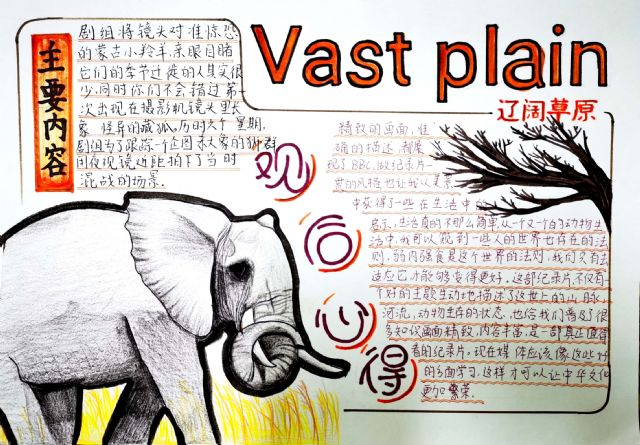 Vast plain
辽阔草原
主要内容
剧组将镜头对准惊恐
的蒙古小羚羊,亲眼目睹
它们的季节迁徙的人其实很
少,同时你们不会错过第一
次出现在摄影机镜头里长
象怪异的藏狐,历时六个星期,
剧组为了跟踪一个企图杀大象的狮群
用夜视镜近距拍下了当时
混战的场景.
观后心得
精致的画面,准
确的描述,都展
现了BBC,做纪录片一
贯的风格也让我从美景
中获得了一些在生活中的
启示,生活真的不那么简单,从一个又一个的动物生
活中,我可以视到一些人的世界也存在的法
则,弱肉强食是这个世界的法则,我们只有去
适应它才能够变得更好,这部纪录片,不仅有
了好的主题生动地描述了这世上的山脉,
河流,动物生存的状态,也给我们普及了很
多知识画面精致,内容丰富,是一部真正值得
看的纪录片,现在媒体应该像这些好
的方面学习,这样才可以让中华文化
更加繁荣.